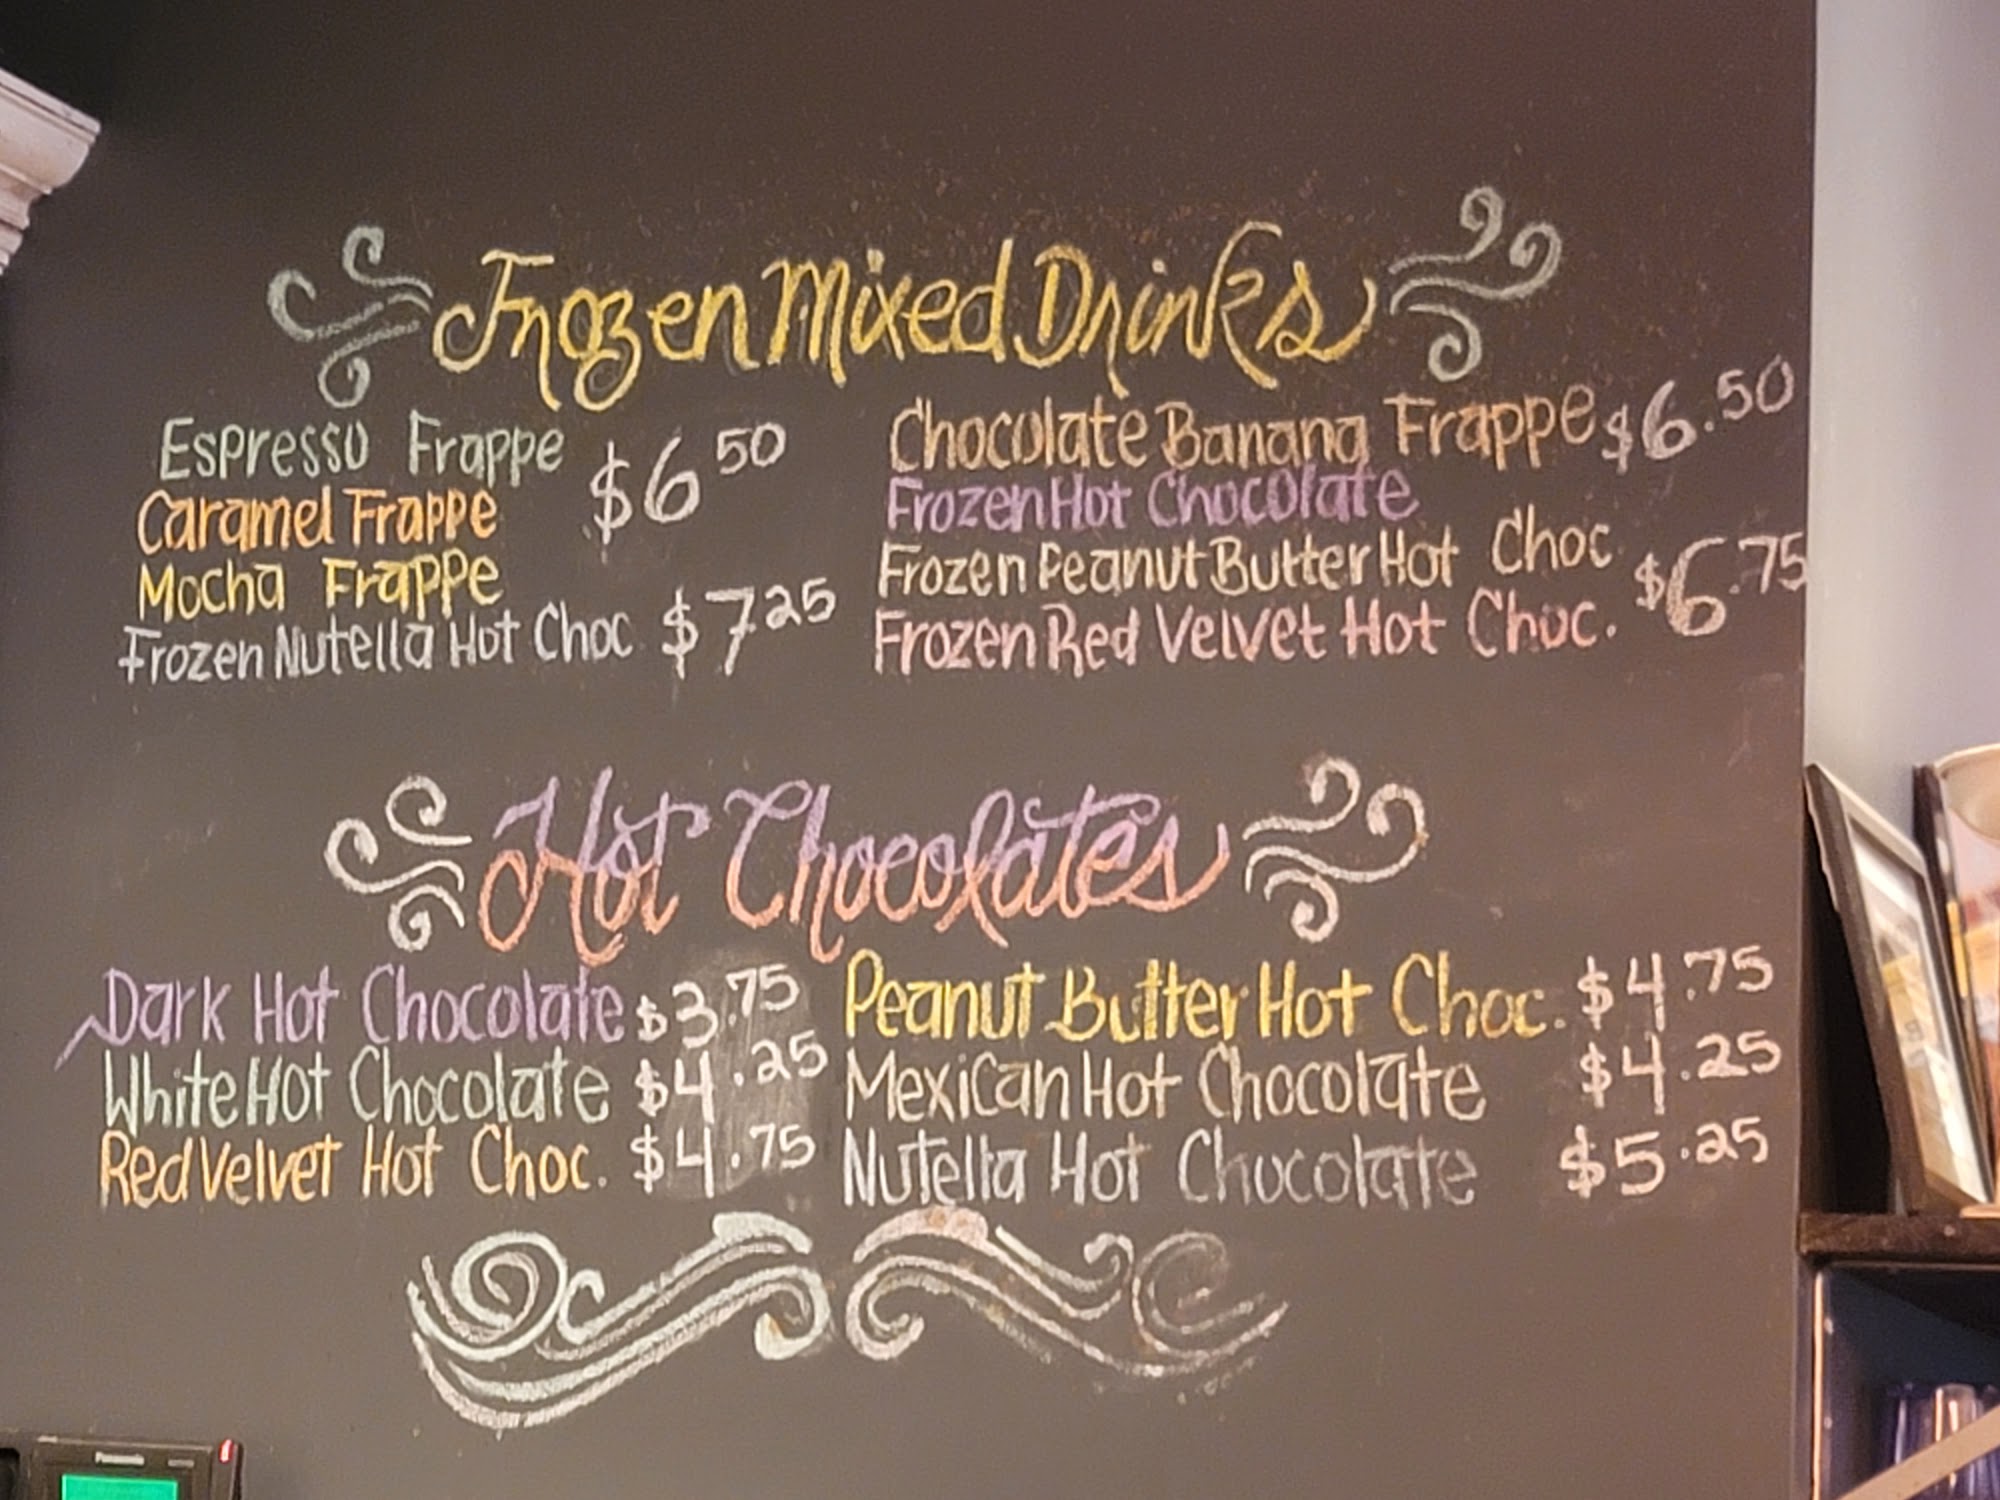 Frozen Mixed Drinks
Espresso Frappe
Caramel Frappe $6.50
Mocha Frappe
Frozen Nutella Hot Choc $7.25
Chocolate Banana Frappe $6.50
Frozen Hot Chocolate
Frozen Peanut Butter Hot Choc $6.75
Frozen Red Velvet Hot Choc.
Hot Chocolates
Dark Hot Chocolate $3.75
White Hot Chocolate $4.25
Red Velvet Hot Choc. $4.75
Peanut Butter Hot Choc. $4.75
Mexican Hot Chocolate $4.25
Nutella Hot Chocolate $5.25
Panasonic